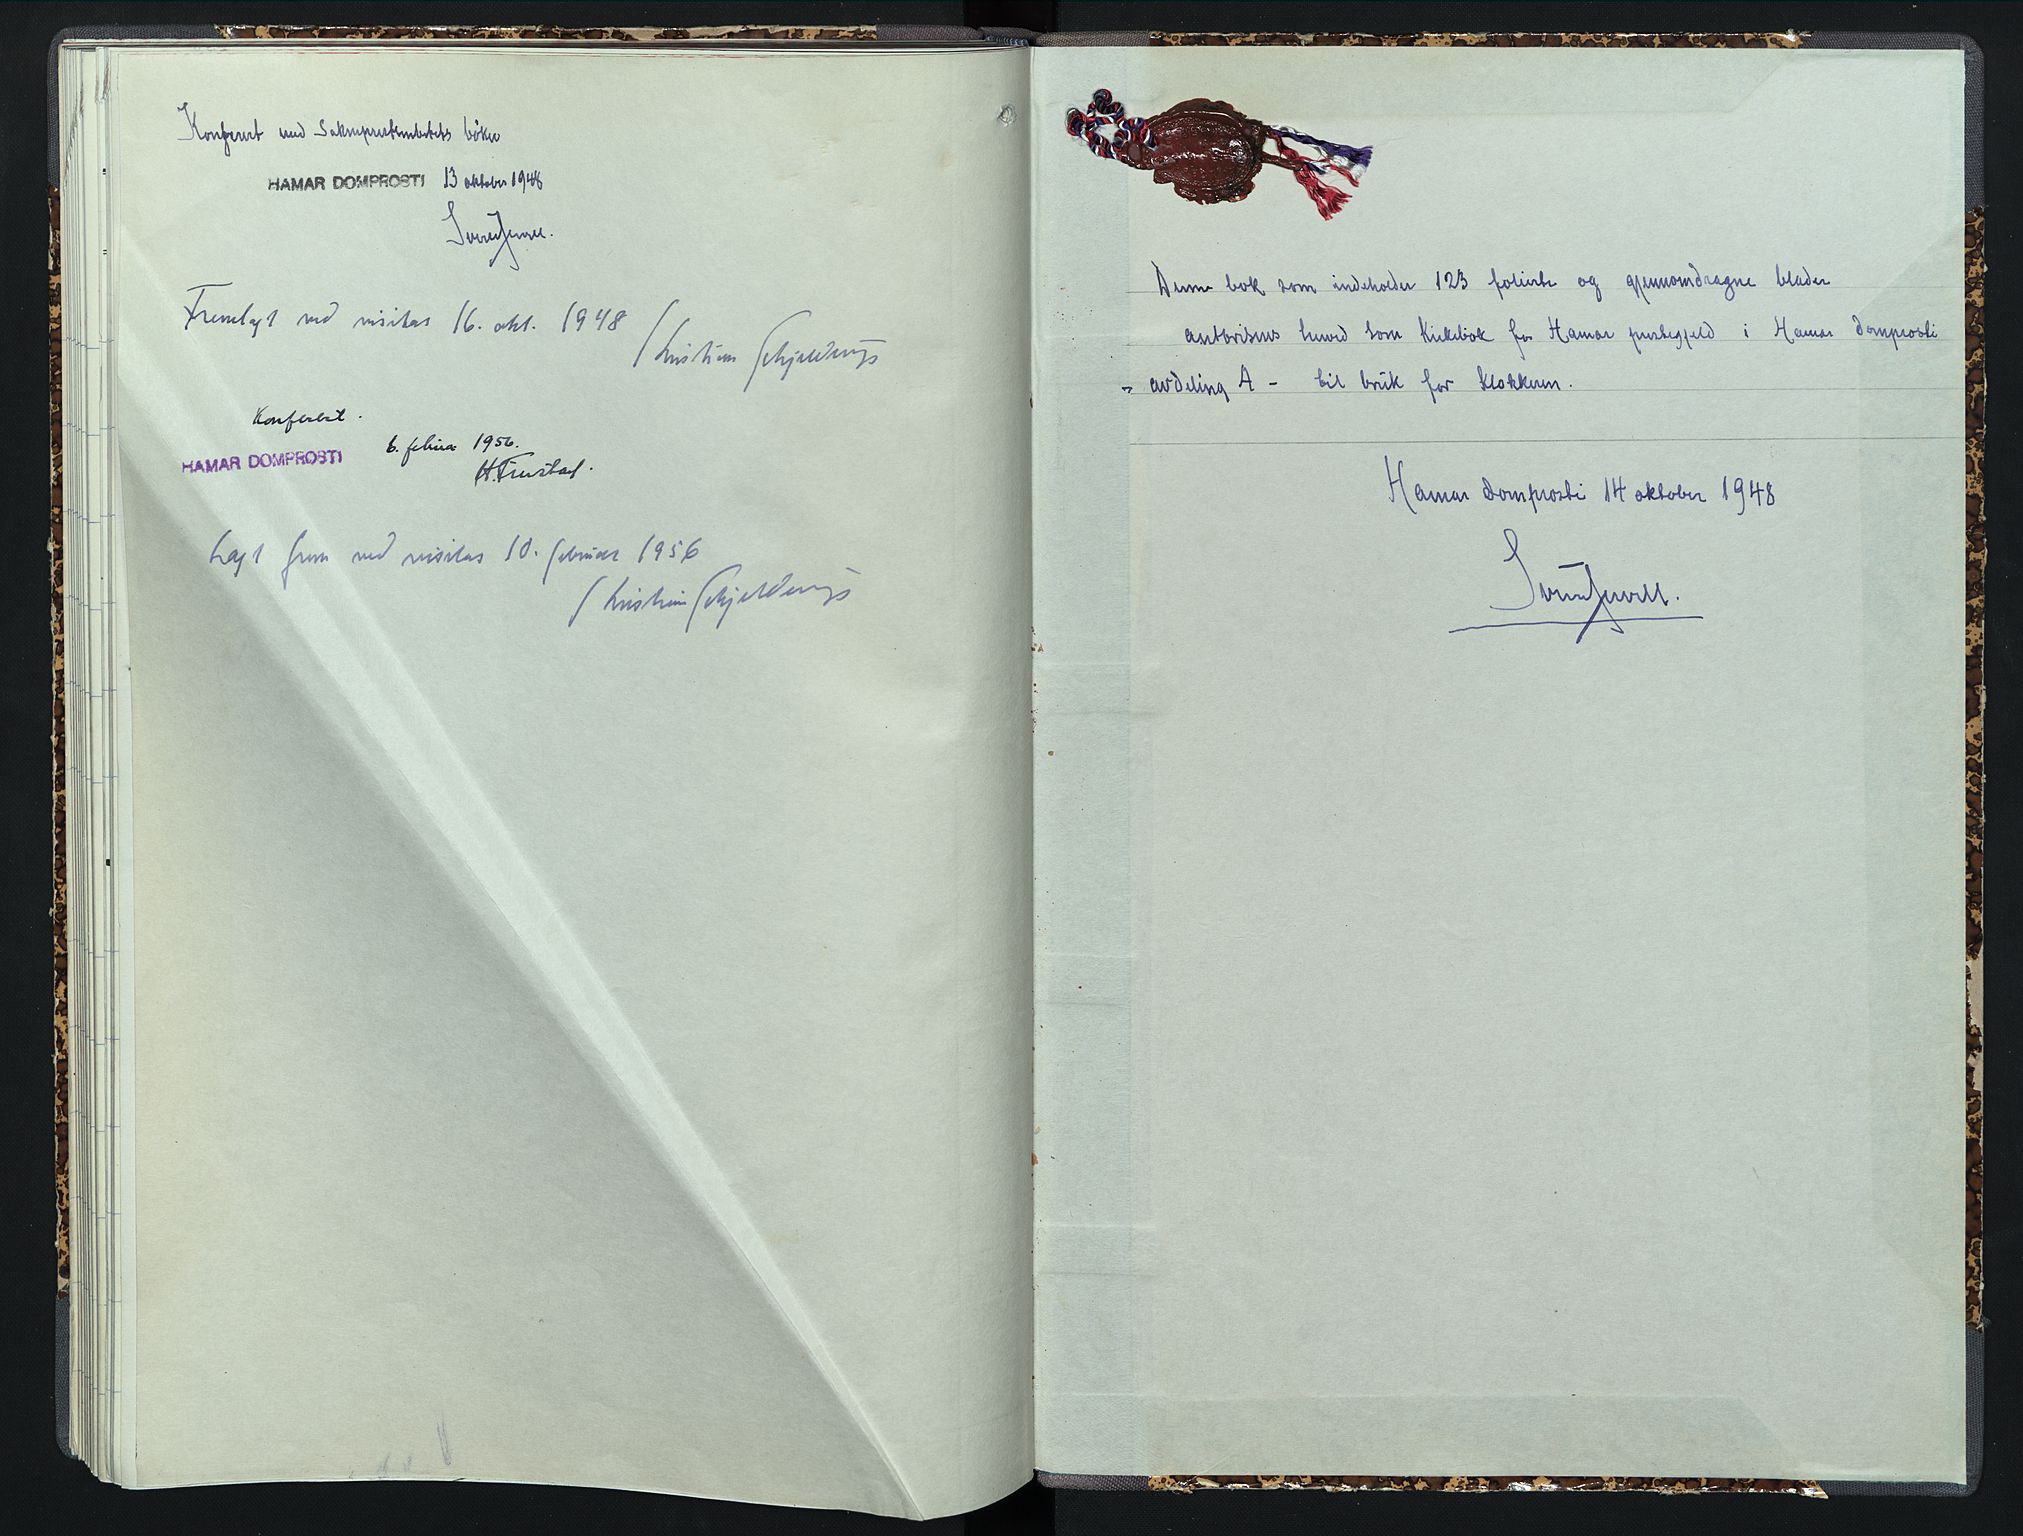 Konferert med Sokneprestembetets bøker
HAMAR DOMPROSTI 13 oktober 1948
Fremlagt ved visitas 16. okt. 1948
Kristian Schjelderup
Konferert.
HAMAR DOMPROSTI 6. februar 1956.
Lagt frem ved visitas 10. februar 1956
Kristian Schjelderup
Denne bok som indeholder 123 folierte og gjennomdragne blader
autoriseres herved som Kirkebok for Hamar prestegjeld i Hamar domprosti
- avdeling A - til bruk for klokkeren.
Hamar domprosti 14 oktober 1948